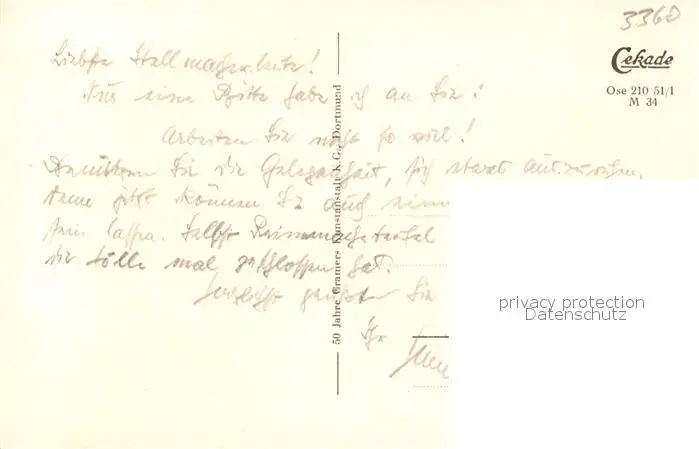 3360
Cekade
Ose 210 51/1
M 34
Liebste
Nur eine Bitte habe ich an Sie:
Arbeiten Sie nicht so viel!
Benützen Sie die Gelegenheit, sich etwas auszuruhen,
denn jetzt können Sie auch
sein lassen. Selbst
die Hölle mal geschlossen hat.
Herzlichst grüßt Sie
Ihr
50 Jahre Cramers Kunstanstalt K.G., Dortmund
privacy protection
Datenschutz